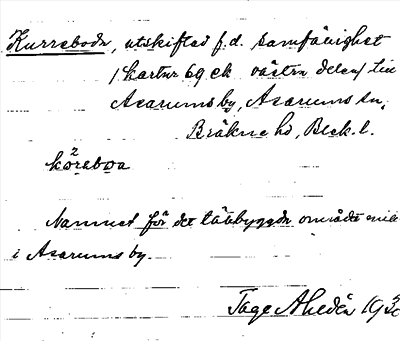 Kurrebode, utskiftad f.d. samfällighet
/kartnr 69 ek västra delen/ till
Asarums by, Asarums sn,
Bräkne hd, Blek. l.
kòrəboa
Namnet för det tätbyggda område
i Asarums by.
Tage Ahldén 193